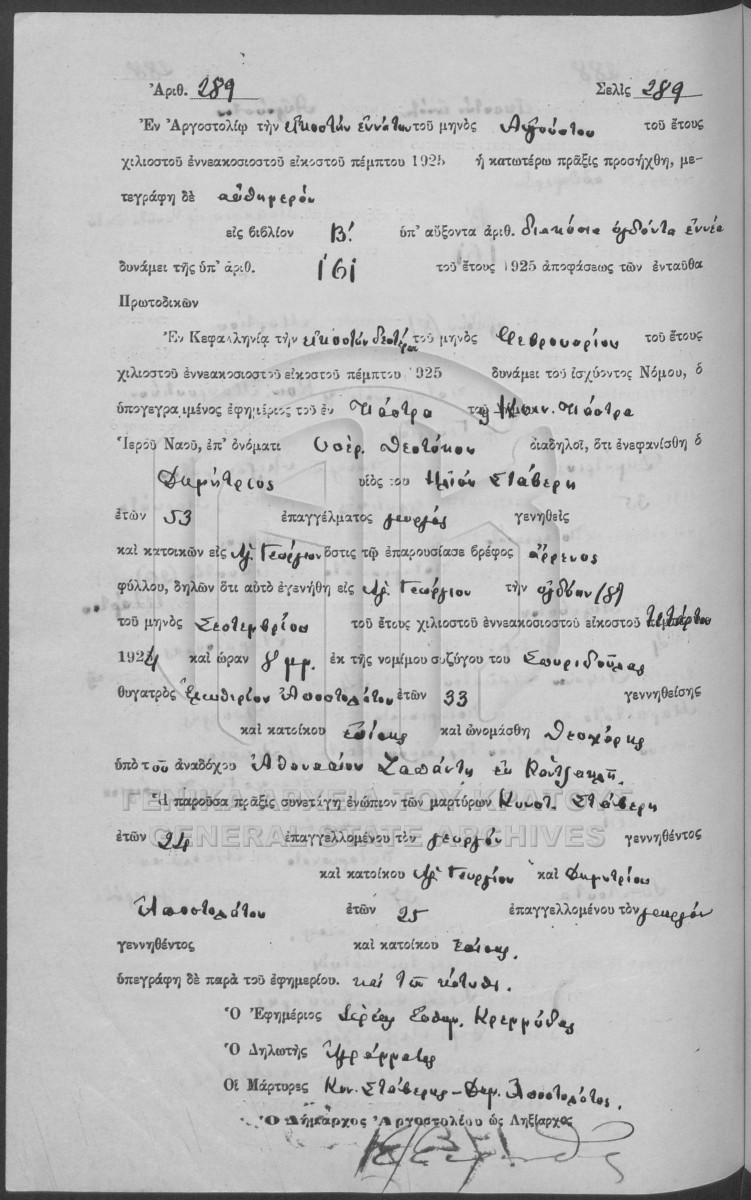 Ἀριθ. 289 Σελὶς 289
Ἐν Ἀργοστολίῳ τὴν εἰκοστὴν ἐννάτην τοῦ μηνὸς Αὐγούστου τοῦ ἔτους
χιλιοστοῦ ἐννεακοσιοστοῦ εἰκοστοῦ πέμπτου 1925 ἡ κατωτέρω πρᾶξις προσήχθη, με-
τεγράφη δὲ αὐθημερόν
εἰς βιβλίον Β! ὑπ' αὔξοντα ἀριθ. διακόσια ὀγδόντα ἐννέα
δυνάμει τῆς ὑπ' ἀριθ. 161 τοῦ ἔτους 1925 ἀποφάσεως τῶν ἐνταῦθα
Πρωτοδικῶν
Ἐν Κεφαλληνίᾳ τὴν εἰκοστὴν δευτέραν τοῦ μηνὸς Φεβρουαρίου τοῦ ἔτους
χιλιοστοῦ ἐννεακοσιοστοῦ εἰκοστοῦ πέμπτου 1925 δυνάμει τοῦ ἰσχύοντος Νόμου, ὁ
ὑπογεγραμμένος ἐφημέριος τοῦ ἐν Πάστρα τοῦ Κοιν. Πάστρα
Ἱεροῦ Ναοῦ, ἐπ' ὀνόματι Ὑπερ. Θεοτόκου διαδηλοῖ, ὅτι ἐνεφανίσθη ὁ
Δημήτριος υἱὸς του Ἠλιοῦ Στάβερη
ἐτῶν 53 ἐπαγγέλματος γεωργός γενηθεὶς
καὶ κατοικῶν εἰς Ἁγ. Γεώργιον ὅστις τῷ ἐπαρουσίασε βρέφος ἄρρενος
φύλλου, δηλῶν ὅτι αὐτὸ ἐγενήθη εἰς Ἁγ. Γεώργιον τὴν ὀγδόην (8)
τοῦ μηνὸς Σεπτεμβρίου τοῦ ἔτους χιλιοστοῦ ἐννεακοσιοστοῦ εἰκοστοῦ τετάρτου
1924 καὶ ὥραν 8 μμ. ἐκ τῆς νομίμου συζύγου του Σπυριδούλας
θυγατρὸς Ἐλευθερίου Ἀποστολάτου ἐτῶν 33 γεννηθείσης
καὶ κατοίκου ἐπίσης καὶ ὠνομάσθη Θεοχάρης
ὑπὸ τοῦ ἀναδόχου Ἀθανασίου Ζαπάντη ἐκ
Ἡ παροῦσα πρᾶξις συνετάγη ἐνώπιον τῶν μαρτύρων Κωνστ. Στάβερη
ΓΕΝΙΚΑ ΑΡΧΕΙΑ ΤΟΥ ΚΡΑΤΟΥΣ
GENERAL STATE ARCHIVES
ἐτῶν 24 ἐπαγγελλομένου τὸν γεωργόν γεννηθέντος
καὶ κατοίκου Ἁγ. Γεωργίου καὶ Δημητρίου
Ἀποστολάτου ἐτῶν 25 ἐπαγγελλομένου τὸν γεωργόν
γεννηθέντος καὶ κατοίκου ἐπίσης.
ὑπεγράφη δὲ παρὰ τοῦ ἐφημερίου. καὶ τῶν
Ὁ Ἐφημέριος Ἱερεὺς Κρεμμύδας
Ὁ Δηλωτὴς Ἀγράμματος
Οἱ Μάρτυρες Κων. Στάβερης - Δημ. Ἀποστολάτος.
Ὁ Δήμαρχος Ἀργοστολίου ὡς Ληξίαρχος